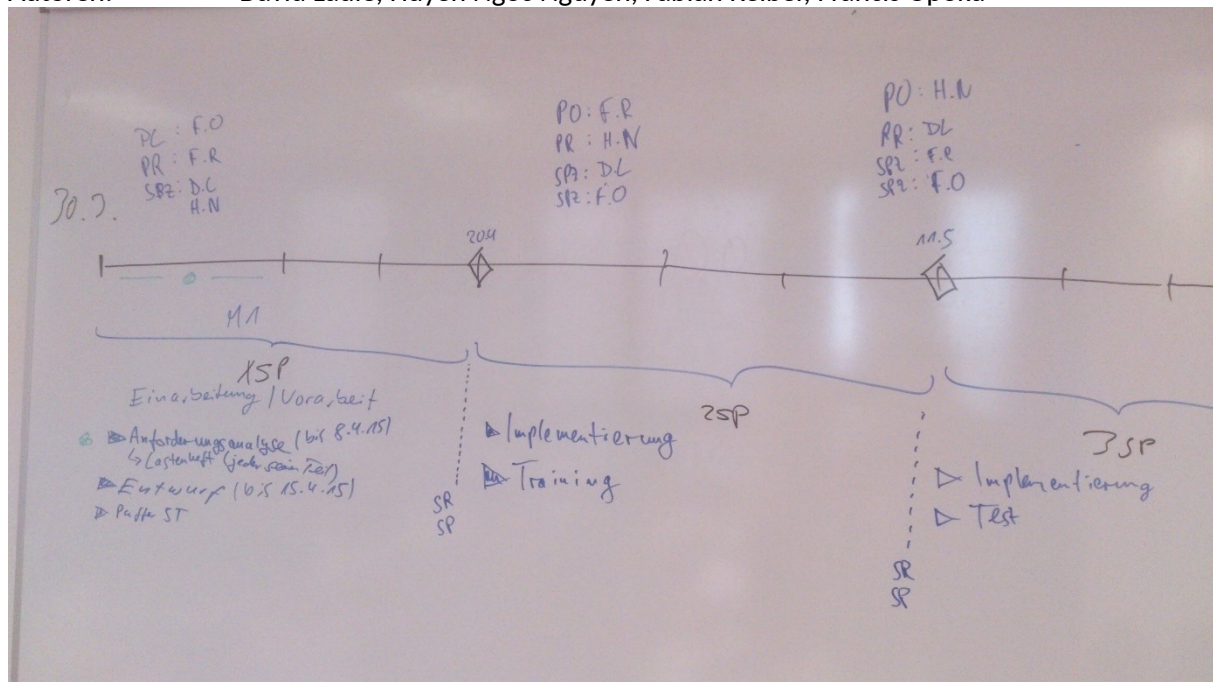 PL : F.O
PR : F.R
SPZ : D.L
H.N
30.3.
PO : F.R
PR : H.N
SPZ : D.L
SPZ : F.O
PO : H.N
PR : DL
SPZ : F.R
SPZ : F.O
20.4
11.5
M1
1SP
2SP
3SP
Einarbeitung / Vorarbeit
Anforderungsanalyse (bis 8.4.15)
↳ Lastenheft (jeder sein Teil)
Entwurf (bis 15.4.15)
Puffer 5T
SR
SP
Implementierung
Training
SR
SP
Implementierung
Test